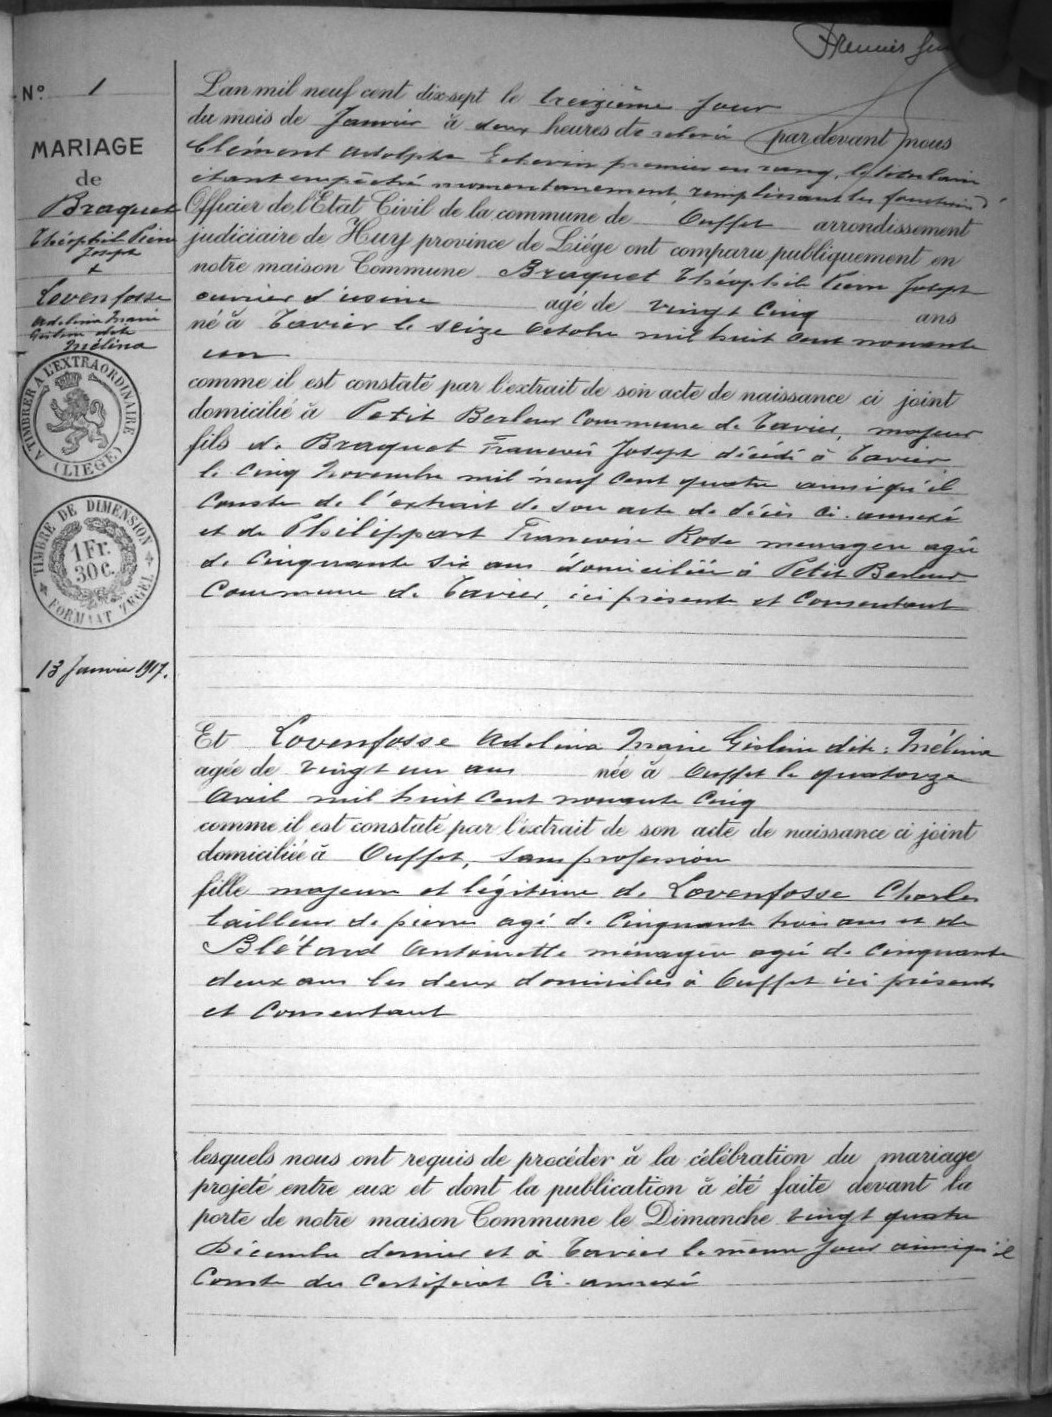 Premier
N° 1
MARIAGE
de
Braquet
Théophile Pierre
Joseph
+
Lovenfosse
Adelina Marie
Gisline dite
Mélina
TIMBRER A L'EXTRAORDINAIRE
(LIEGE)
TIMBRE DE DIMENSION
1 Fr.
30 C.
FORMAAT ZEGEL
13 Janvier 1917.
L'an mil neuf cent dix-sept le treizième jour
du mois de Janvier à deux heures de relevée par devant nous
Clément Adolphe Echevin premier en rang, le titulaire
étant empêché momentanement, remplissant les fonctions d'
Officier de l'Etat Civil de la commune de Ouffet arrondissement
judiciaire de Huy province de Liége ont comparu publiquement en
notre maison Commune Braquet Théophile Pierre Joseph
ouvrier d'usine agé de vingt cinq ans
né à Tavier le seize Octobre mil huit cent nonante
un
comme il est constaté par l'extrait de son acte de naissance ci joint
domicilié à Petit Berleur Commune de Tavier, majeur
fils de Braquet François Joseph décédé à Tavier
le cinq Novembre mil neuf cent quatre ainsi qu'il
conste de l'extrait de son acte de décès ci-annexé
et de Philippart Francoise Rose menagère agée
de cinquante six ans domiciliée à Petit Berleur
Commune de Tavier, ici présente et Consentant
Et Lovenfosse Adelina Marie Gisline dite: Mélina
agée de vingt un ans née à Ouffet le quatorze
Avril mil huit cent nonante cinq
comme il est constaté par l'extrait de son acte de naissance ci joint
domiciliée à Ouffet, sans profession
fille majeure et légitime de Lovenfosse Charles
tailleur de pierres agé de cinquante trois ans et de
Blétard Antoinette ménagère agée de cinquante
deux ans les deux domiciliés à Ouffet ici présents
et Consentant
lesquels nous ont requis de procéder à la célébration du mariage
projeté entre eux et dont la publication à été faite devant la
porte de notre maison Commune le Dimanche vingt quatre
Décembre dernier et à Tavier le même jour ainsi qu'il
Conste du Certificat Ci-annexé